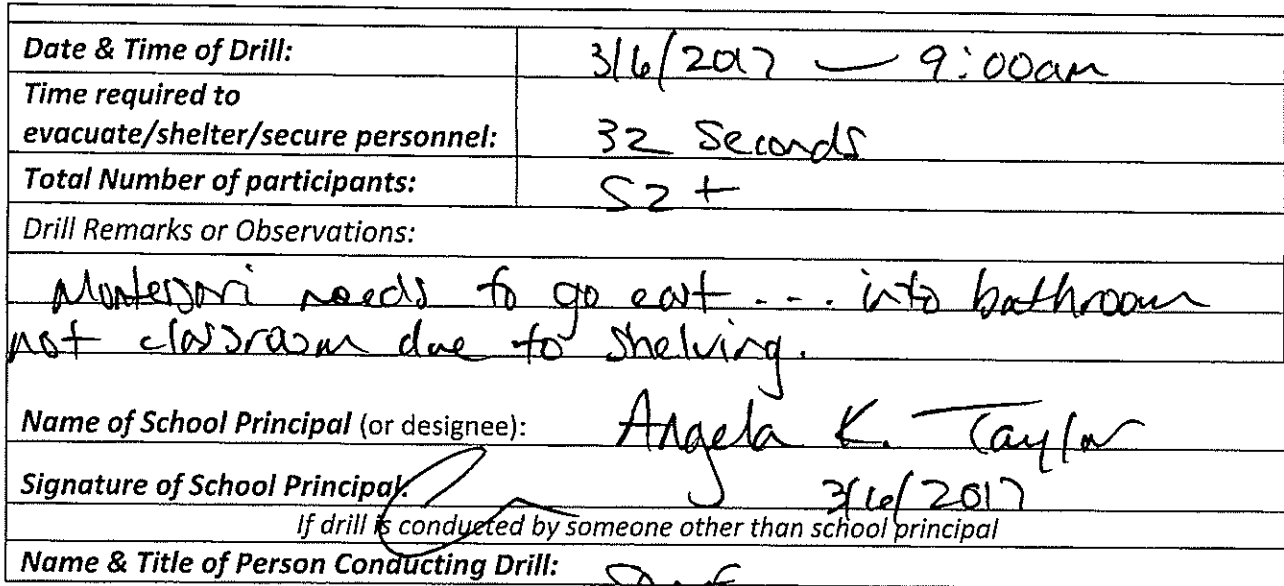 Date & Time of Drill: 3/6/2017 — 9:00am
Time required to
evacuate/shelter/secure personnel: 32 Seconds
Total Number of participants: 52 +
Drill Remarks or Observations:
Montessori needs to go east --- into bathroom
not classroom due to shelving.
Name of School Principal (or designee): Angela K. Taylor
Signature of School Principal: 3/6/2017
If drill is conducted by someone other than school principal
Name & Title of Person Conducting Drill: